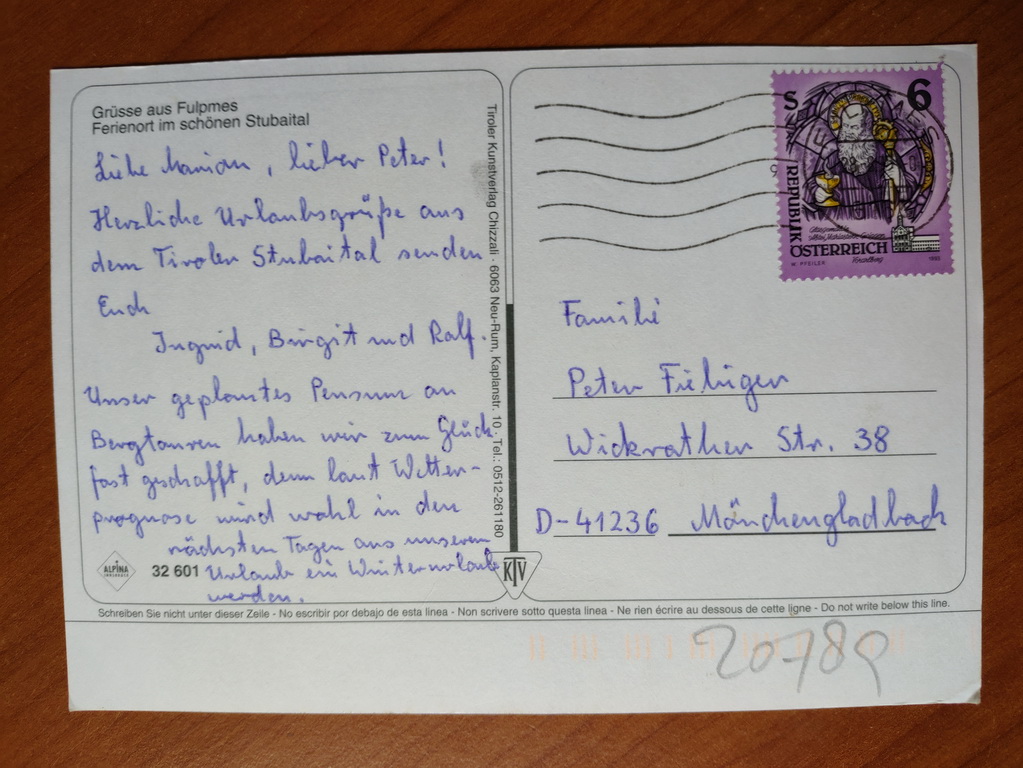 Grüsse aus Fulpmes
Ferienort im schönen Stubaital
Liebe Marion, lieber Peter!
Herzliche Urlaubsgrüße aus
dem Tiroler Stubaital senden
Euch
Ingrid, Birgit und Ralf.
Unser geplantes Pensum an
Bergtouren haben wir zum Glück
fast geschafft, denn laut Wetter-
prognose wird wohl in den
nächsten Tagen aus unserem
Urlaub ein Winterurlaub
werden.
ALPINA
INNSBRUCK
32 601
Tiroler Kunstverlag Chizzali · 6063 Neu-Rum, Kaplanstr. 10 · Tel.: 0512-261180
KTV
S 6
REPUBLIK
ÖSTERREICH
W. PFEILER
1993
Familie
Peter
Wickrather Str. 38
D-41236 Mönchengladbach
Schreiben Sie nicht unter dieser Zeile - No escribir por debajo de esta linea - Non scrivere sotto questa linea - Ne rien écrire au dessous de cette ligne - Do not write below this line.
20789